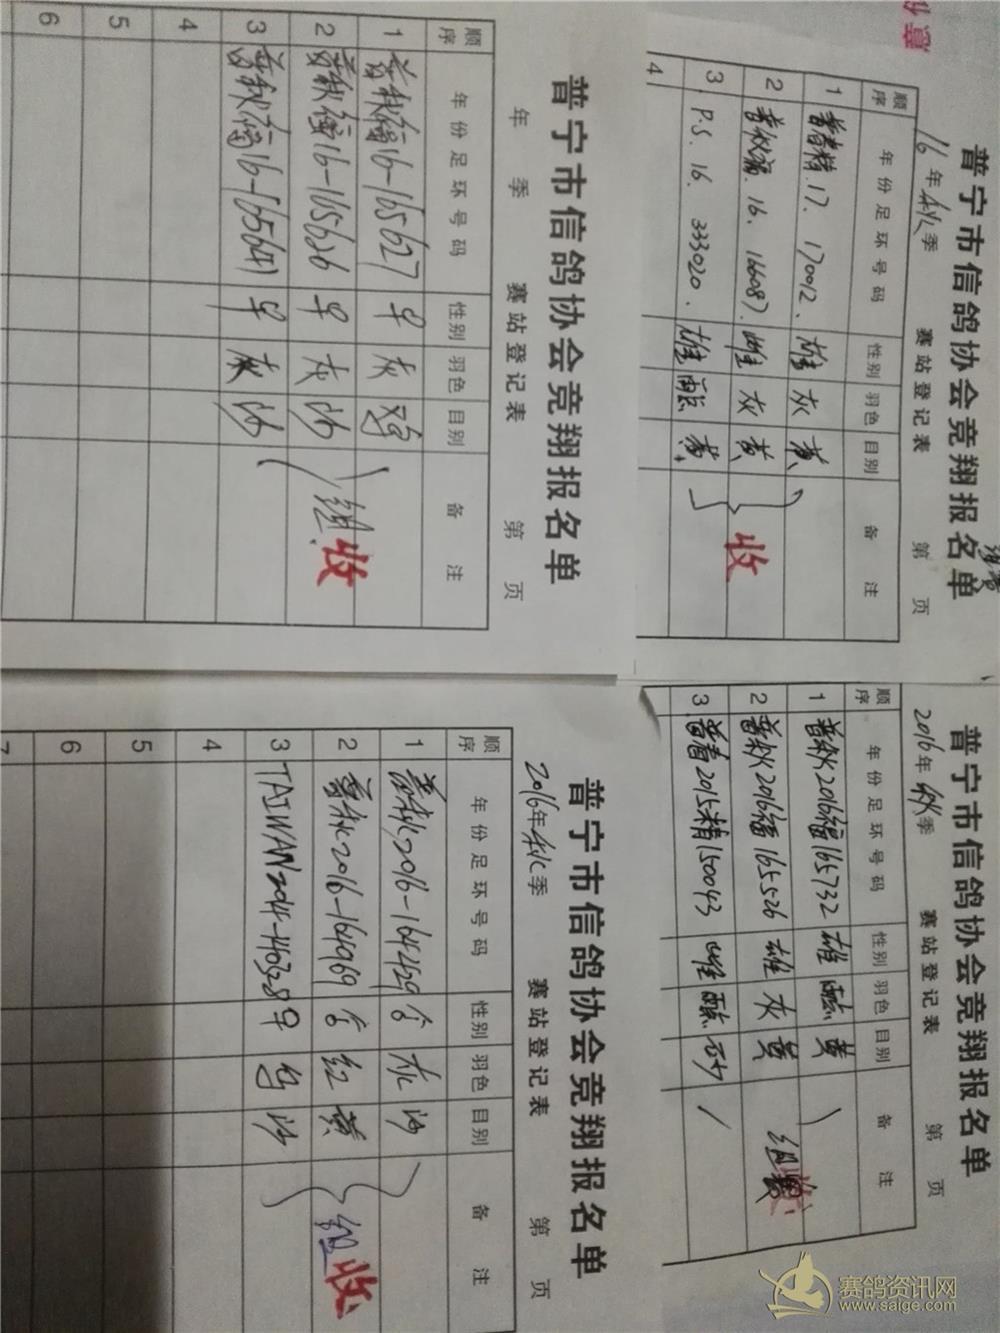 普宁市信鸽协会竞翔报名单
年 季 赛站登记表 第 页
顺序 年份足环号码 性别 羽色 目别 备注
1 普秋福16-165627 早 灰 鸡
2 普秋福16-165626 早 灰 沙
3 普秋福16-165641 早 灰 沙
4
5
6
组
收
普宁市信鸽协会竞翔报名单
16年秋季 赛站登记表 第 页
顺序 年份足环号码 性别 羽色 目别 备注
1 普春精.17. 170012. 雄 灰 黄
2 普秋福.16. 166087. 雌 灰 黄
3 P.S. 16. 333020. 雄 黄
4
收
普宁市信鸽协会竞翔报名单
2016年秋季 赛站登记表 第 页
顺序 年份足环号码 性别 羽色 目别 备注
1 普秋2016-164459 灰 沙
2 普秋2016-164969 红 黄
3 TAIWAN2014- 沙
4
5
6
7
组
收
普宁市信鸽协会竞翔报名单
2016年秋季 赛站登记表 第 页
顺序 年份足环号码 性别 羽色 目别 备注
1 普秋2016福165732 雄 黄
2 普秋2016福165526 雄 灰 黄
3 普春2015精150043 雌 砂
组
收
赛鸽资讯网
www.saige.com